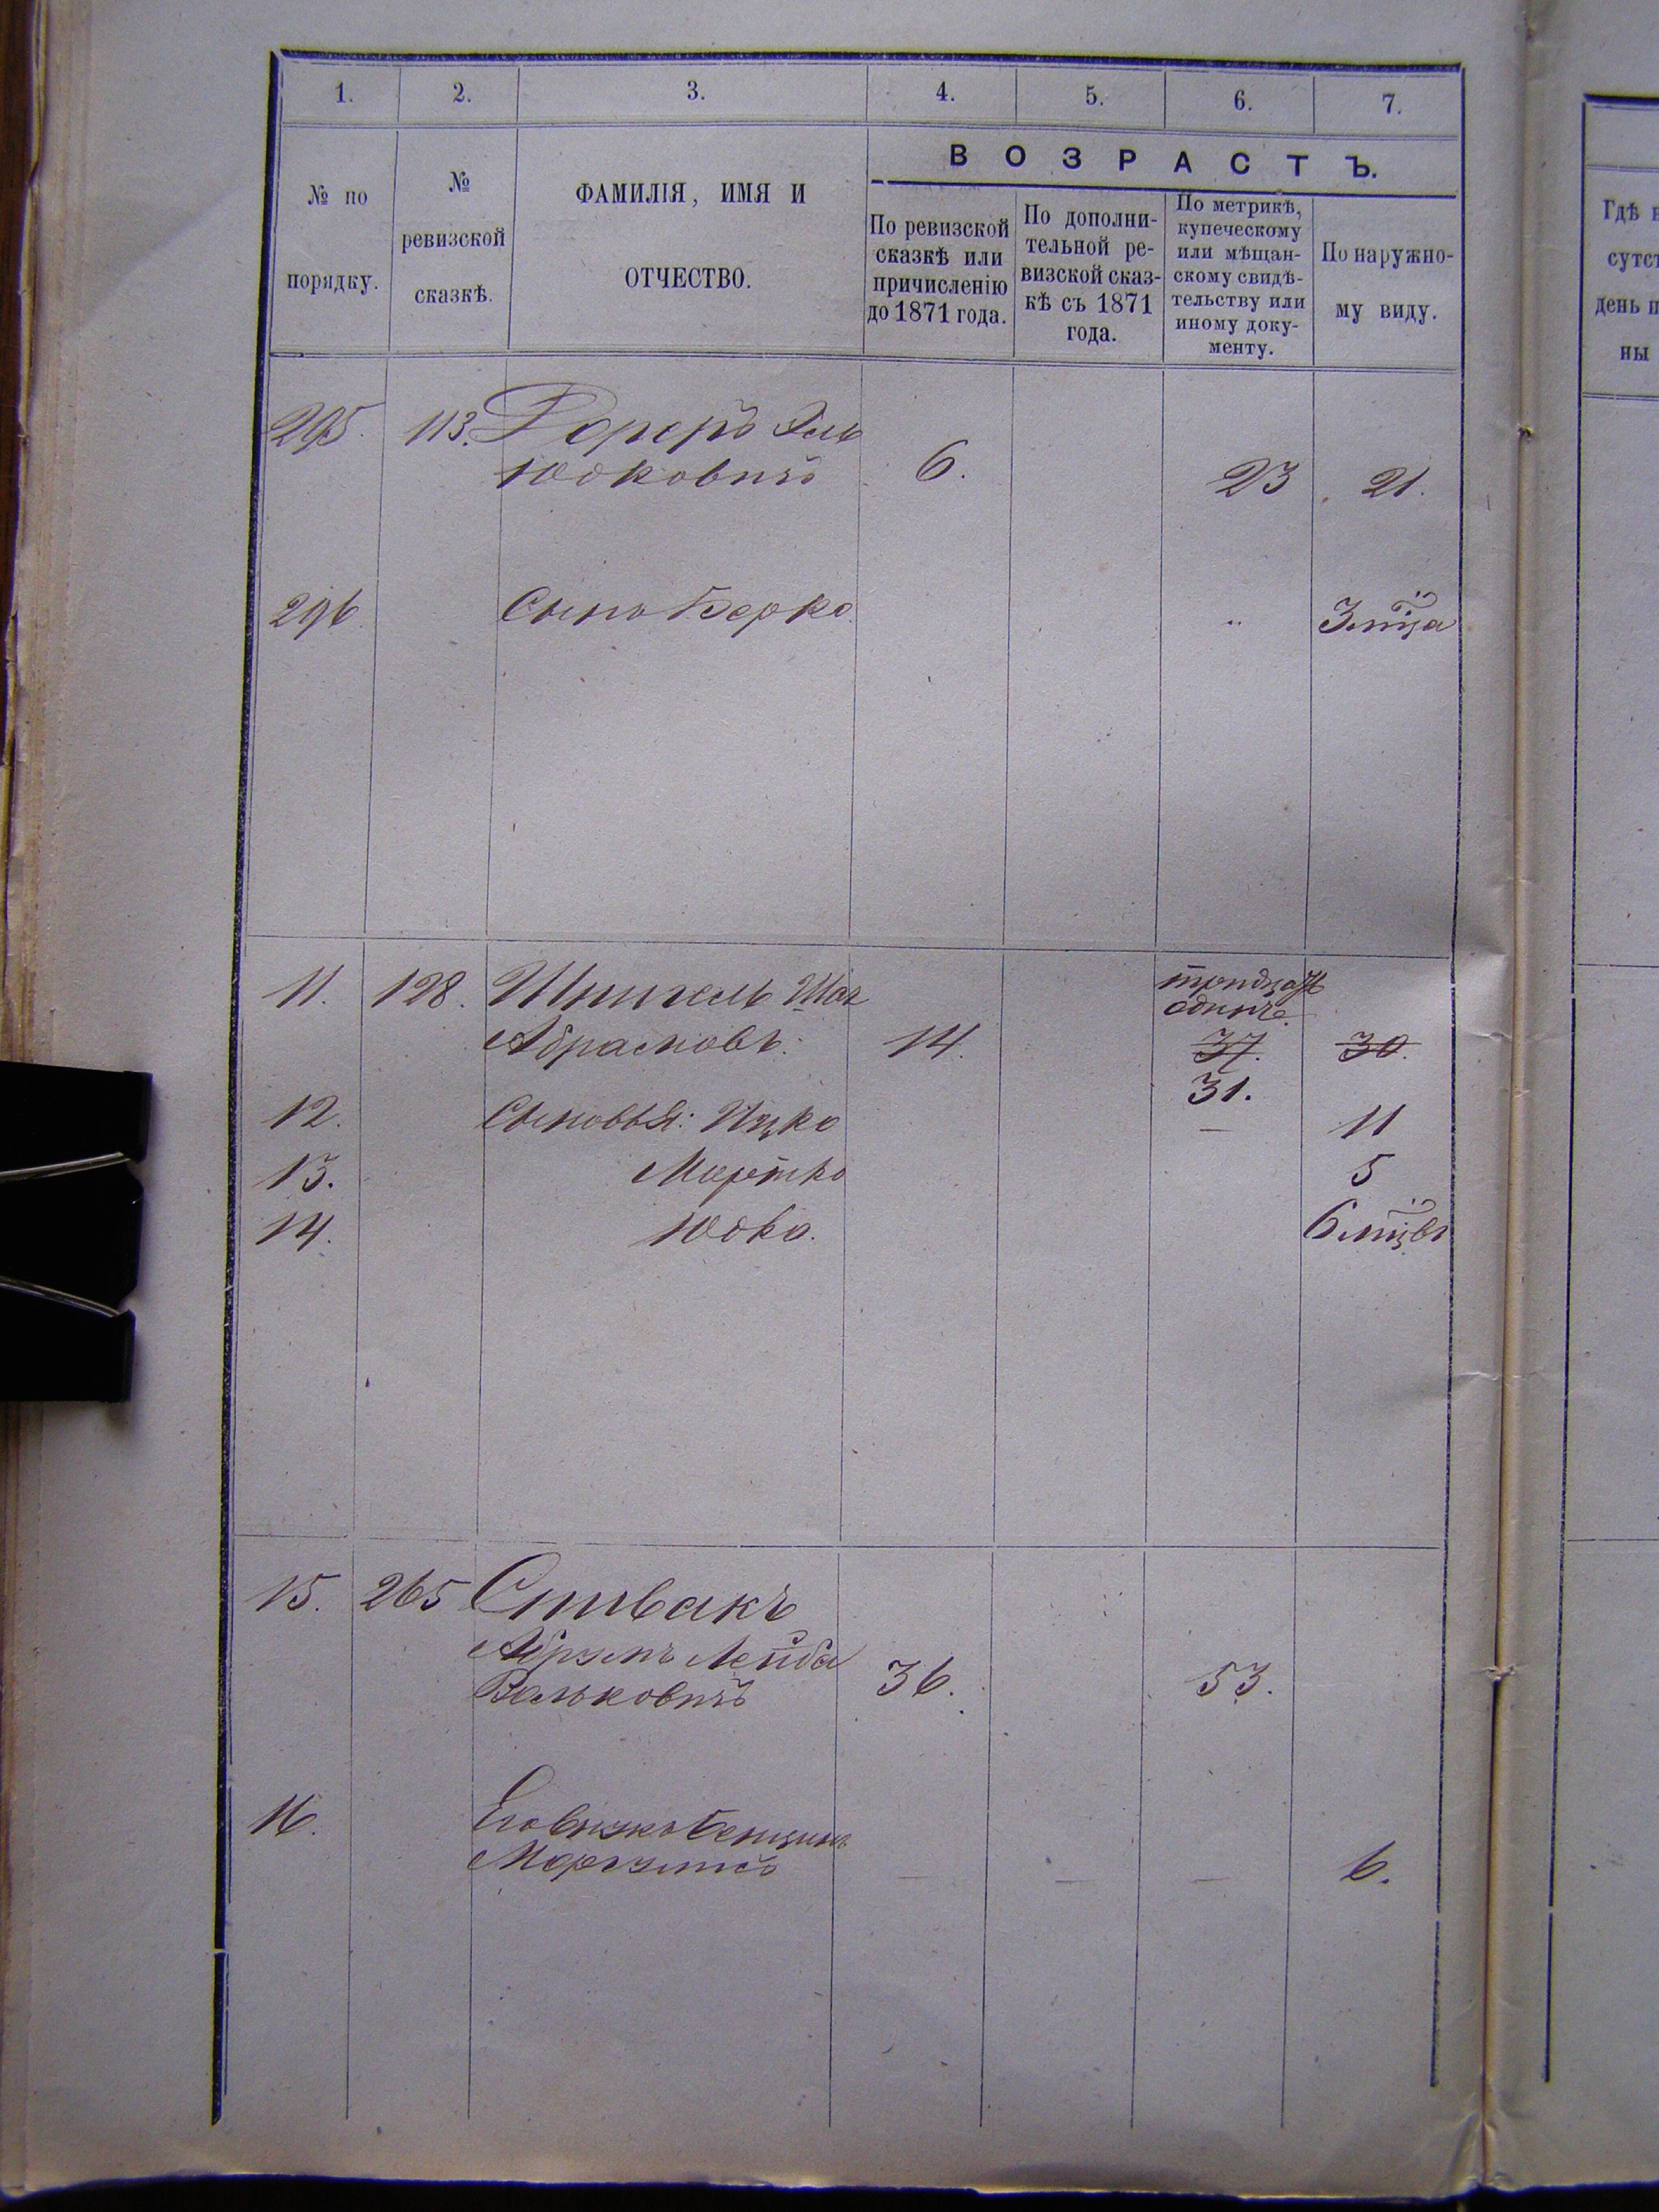 1. 2. 3. 4. 5. 6. 7.
№ по порядку.
№ ревизской сказкѣ.
ФАМИЛІЯ, ИМЯ И
ОТЧЕСТВО.
ВОЗРАСТЪ.
По ревизской
сказкѣ или
причисленію
до 1871 года.
По дополни-
тельной ре-
визской сказ-
кѣ съ 1871
года.
По метрикѣ,
купеческому
или мѣщан-
скому свидѣ-
тельству или
иному доку-
менту.
По наружно-
му виду.
Гдѣ
день
ны
295. 113.
Юдковичъ 6. 23 21.
296 Сынъ Берко " 3 мца
11. 128. Шпигель
тридцать
одинъ.
Абрамовъ: 14. 37. 30.
31.
12. Сыновья: Ицко — 11
13. Мортко 5
14. Юдко. 6 мцвъ
15. 265 Спивакъ
Абрумъ Лейба
Вольковичъ 36. 53.
16. Его внукъ Бенционъ
— — — 6.